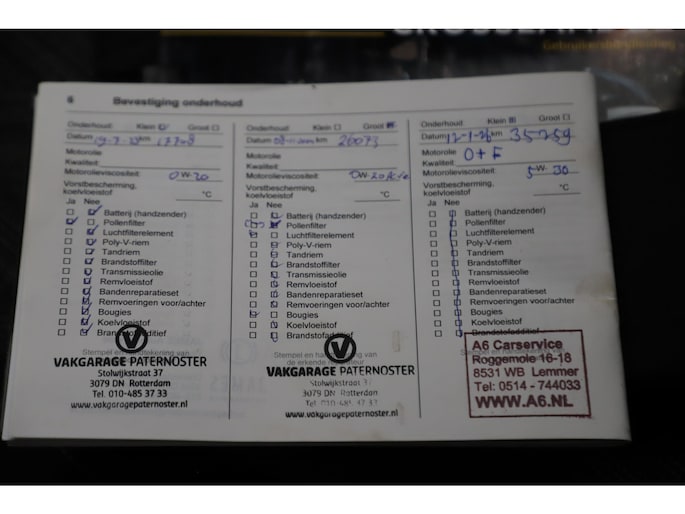 6 Bevestiging onderhoud
Onderhoud: Klein Groot
Datum km 17708
Motorolie
Kwaliteit:
Motorolieviscositeit: 0W-20
Vorstbescherming,
koelvloeistof °C
Ja Nee
Batterij (handzender)
Pollenfilter
Luchtfilterelement
Poly-V-riem
Tandriem
Brandstoffilter
Transmissieolie
Remvloeistof
Bandenreparatieset
Remvoeringen voor/achter
Bougies
Koelvloeistof
Brandstofadditief
VAKGARAGE PATERNOSTER
Stolwijkstraat 37
3079 DN Rotterdam
Tel. 010-485 37 33
www.vakgaragepaternoster.nl
Onderhoud: Klein Groot
Datum km 26073
Motorolie
Kwaliteit:
Motorolieviscositeit: 0W-20
Vorstbescherming,
koelvloeistof °C
Ja Nee
Batterij (handzender)
Pollenfilter
Luchtfilterelement
Poly-V-riem
Tandriem
Brandstoffilter
Transmissieolie
Remvloeistof
Bandenreparatieset
Remvoeringen voor/achter
Bougies
Koelvloeistof
Brandstofadditief
VAKGARAGE PATERNOSTER
Stolwijkstraat 37
3079 DN Rotterdam
Tel. 010-485 37 33
www.vakgaragepaternoster.nl
Onderhoud: Klein Groot
Datum 12-1-26 km 35259
Motorolie O+F
Kwaliteit:
Motorolieviscositeit: 5W-30
Vorstbescherming,
koelvloeistof °C
Ja Nee
Batterij (handzender)
Pollenfilter
Luchtfilterelement
Poly-V-riem
Tandriem
Brandstoffilter
Transmissieolie
Remvloeistof
Bandenreparatieset
Remvoeringen voor/achter
Bougies
Koelvloeistof
Brandstofadditief
A6 Carservice
Roggemole 16-18
8531 WB Lemmer
Tel: 0514 - 744033
WWW.A6.NL